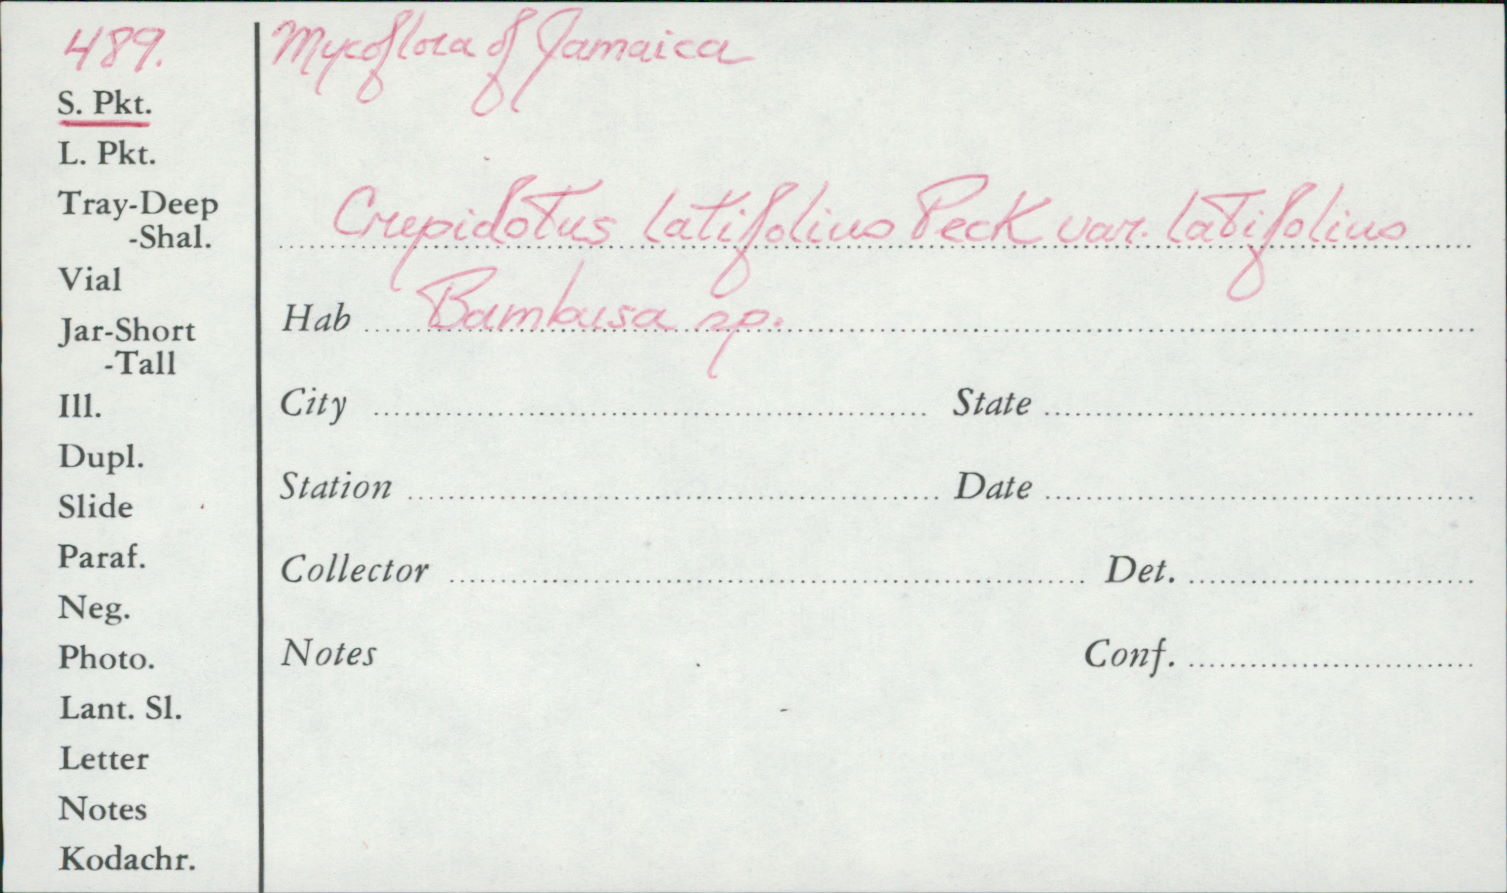 489.
S. Pkt.
L. Pkt.
Tray-Deep
-Shal.
Vial
Jar-Short
-Tall
Ill.
Dupl.
Slide
Paraf.
Neg.
Photo.
Lant. Sl.
Letter
Notes
Kodachr.
Mycoflora of Jamaica
Crepidotus latifolius Peck var. latifolius
Hab Bambusa sp.
City State
Station Date
Collector Det.
Notes Conf.